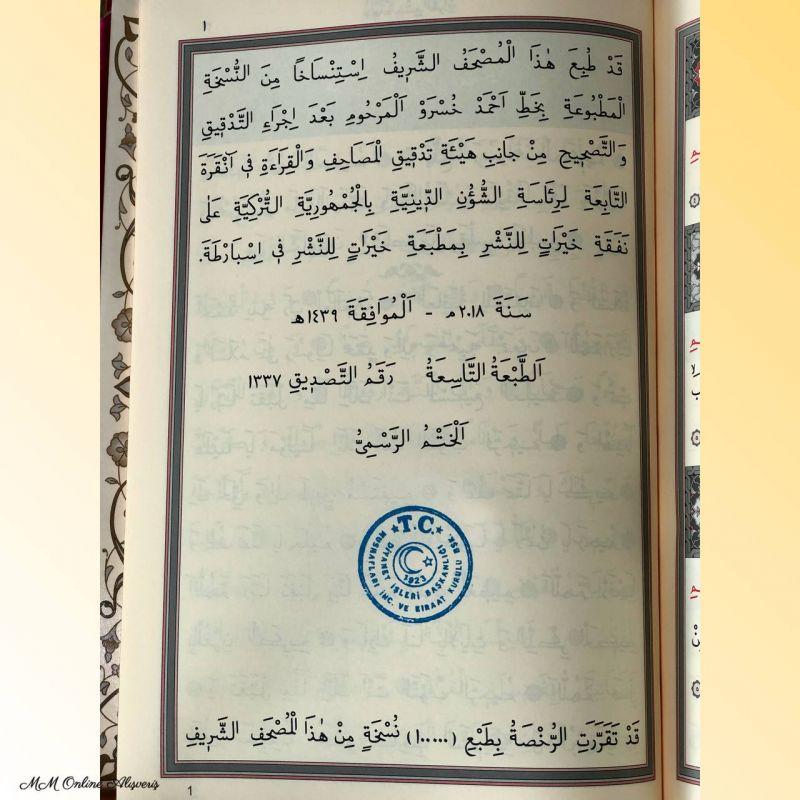 ١
قَدْ طُبِعَ هٰذَا الْمُصْحَفُ الشَّرٖيفُ اِسْتِنْسَاخًا مِنَ النُّسْخَةِ
الْمَطْبُوعَةِ بِخَطِّ اَحْمَدْ خُسْرَوْ اَلْمَرْحُومِ بَعْدَ اِجْرَاءِ التَّدْقٖيقِ
وَالتَّصْحٖيحِ مِنْ جَانِبِ هَيْئَةِ تَدْقٖيقِ الْمَصَاحِفِ وَالْقِرَاءَةِ فٖى اَنْقَرَةَ
التَّابِعَةِ لِرِئَاسَةِ الشُّؤُنِ الدّٖينِيَّةِ بِالْجُمْهُورِيَّةِ التُّرْكِيَّةِ عَلٰى
نَفَقَةِ خَيْرَاتٍ لِلنَّشْرِ بِمَطْبَعَةِ خَيْرَاتٍ لِلنَّشْرِ فٖى اِسْبَارْطَةَ.
سَنَةَ ٢٠١٨م - اَلْمُوَافِقَةَ ١٤٣٩هـ
اَلطَّبْعَةُ التَّاسِعَةُ رَقَمُ التَّصْدٖيقِ ١٣٣٧
اَلْخَتْمُ الرَّسْمِىُّ
★T.C.★
MUSHAFLARI İNC. VE KIRAAT KURULU BŞK.
DİYANET İŞLERİ BAŞKANLIĞI
1923
قَدْ تَقَرَّرَتِ الرُّخْصَةُ بِطَبْعِ (١٠٠٠٠٠) نُسْخَةٍ مِنْ هٰذَا الْمُصْحَفِ الشَّرٖيفِ
1
MM Online Alışveriş